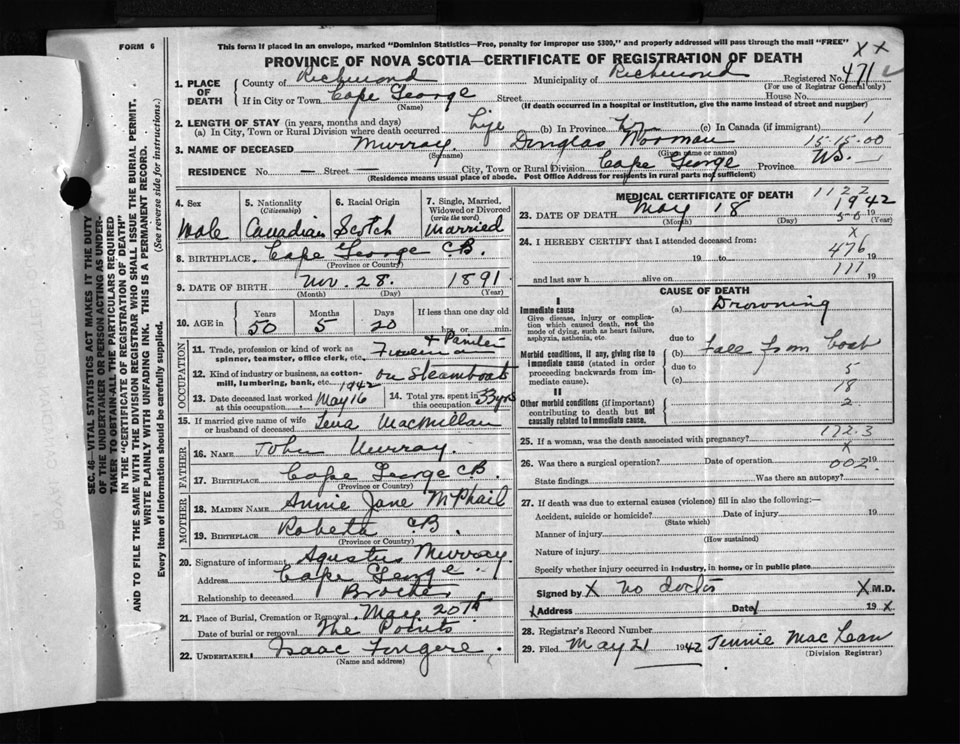 FORM 6
This form if placed in an envelope, marked "Dominion Statistics—Free, penalty for improper use $300," and properly addressed will pass through the mail "FREE"
PROVINCE OF NOVA SCOTIA—CERTIFICATE OF REGISTRATION OF DEATH
X X
1. PLACE OF DEATH
County of Richmond Municipality of Richmond Registered No. 471
(For use of Registrar General only)
If in City or Town Cape George Street House No.
(Name) (If death occurred in a hospital or institution, give the name instead of street and number)
2. LENGTH OF STAY (in years, months and days)
(a) In City, Town or Rural Division where death occurred Life (b) In Province (c) In Canada (if immigrant) 1
3. NAME OF DECEASED Murray Douglas Norman 15-15-00
(Surname) (Given name or names)
RESIDENCE No. — Street — City, Town or Rural Division Cape George Province NS.
(Residence means usual place of abode. Post Office Address for residents in rural parts not sufficient)
4. Sex
Male
5. Nationality (Citizenship)
Canadian
6. Racial Origin
Scotch
7. Single, Married, Widowed or Divorced (write the word)
Married
8. BIRTHPLACE Cape George C.B.
(Province or Country)
9. DATE OF BIRTH Nov. 28. 1891.
(Month) (Day) (Year)
10. AGE in Years Months Days If less than one day old
50 5 20 hrs. or min.
OCCUPATION
11. Trade, profession or kind of work as spinner, teamster, office clerk, etc. Fireman + Painter
12. Kind of industry or business, as cotton-mill, lumbering, bank, etc. on Steamboats
13. Date deceased last worked at this occupation May 16 1942
14. Total yrs. spent in this occupation 33 yrs
15. If married give name of wife or husband of deceased Lena MacMillan
FATHER
16. NAME John Murray.
17. BIRTHPLACE Cape George CB
(Province or Country)
MOTHER
18. MAIDEN NAME Annie Jane McPhail
19. BIRTHPLACE Roberta CB.
(Province or Country)
20. Signature of informant Agustus Murray.
Address Cape George
Relationship to deceased Brother
21. Place of Burial, Cremation or Removal May 20th
Date of burial or removal The Points
22. UNDERTAKER Isaac
(Name and address)
MEDICAL CERTIFICATE OF DEATH 1122
23. DATE OF DEATH May 18 1942
(Month) (Day) 50 19 (Year)
24. I HEREBY CERTIFY that I attended deceased from: X
19 to 476 19
and last saw h alive on 111 19
CAUSE OF DEATH
I
Immediate cause
Give disease, injury or complication which caused death, not the mode of dying, such as heart failure, asphyxia, asthenia, etc.
(a) Drowning
due to
Morbid conditions, if any, giving rise to immediate cause (stated in order proceeding backwards from immediate cause).
(b) Fall from boat
due to 5
(c) 18
II
Other morbid conditions (if important) contributing to death but not causally related to immediate cause.
2
172.3
25. If a woman, was the death associated with pregnancy?
X
26. Was there a surgical operation? Date of operation 19
002.
State findings Was there an autopsy?
27. If death was due to external causes (violence) fill in also the following:—
Accident, suicide or homicide? Date of injury 19
(State which)
Manner of injury
(How sustained)
Nature of injury
Specify whether injury occurred in industry, in home, or in public place
Signed by X No doctor X M.D.
X Address Date 19 X
28. Registrar's Record Number
29. Filed May 21 1942 Tennie Mac Lean
(Division Registrar)
SEC. 46 VITAL STATISTICS ACT MAKES IT THE DUTY
OF THE UNDERTAKER OR PERSON ACTING AS UNDER-
TAKER TO OBTAIN ALL THE PARTICULARS REQUIRED
IN THE "CERTIFICATE OF REGISTRATION OF DEATH"
AND TO FILE THE SAME WITH THE DIVISION REGISTRAR WHO SHALL ISSUE THE BURIAL PERMIT.
WRITE PLAINLY WITH UNFADING INK. THIS IS A PERMANENT RECORD.
Every item of information should be carefully supplied. (See reverse side for instructions.)